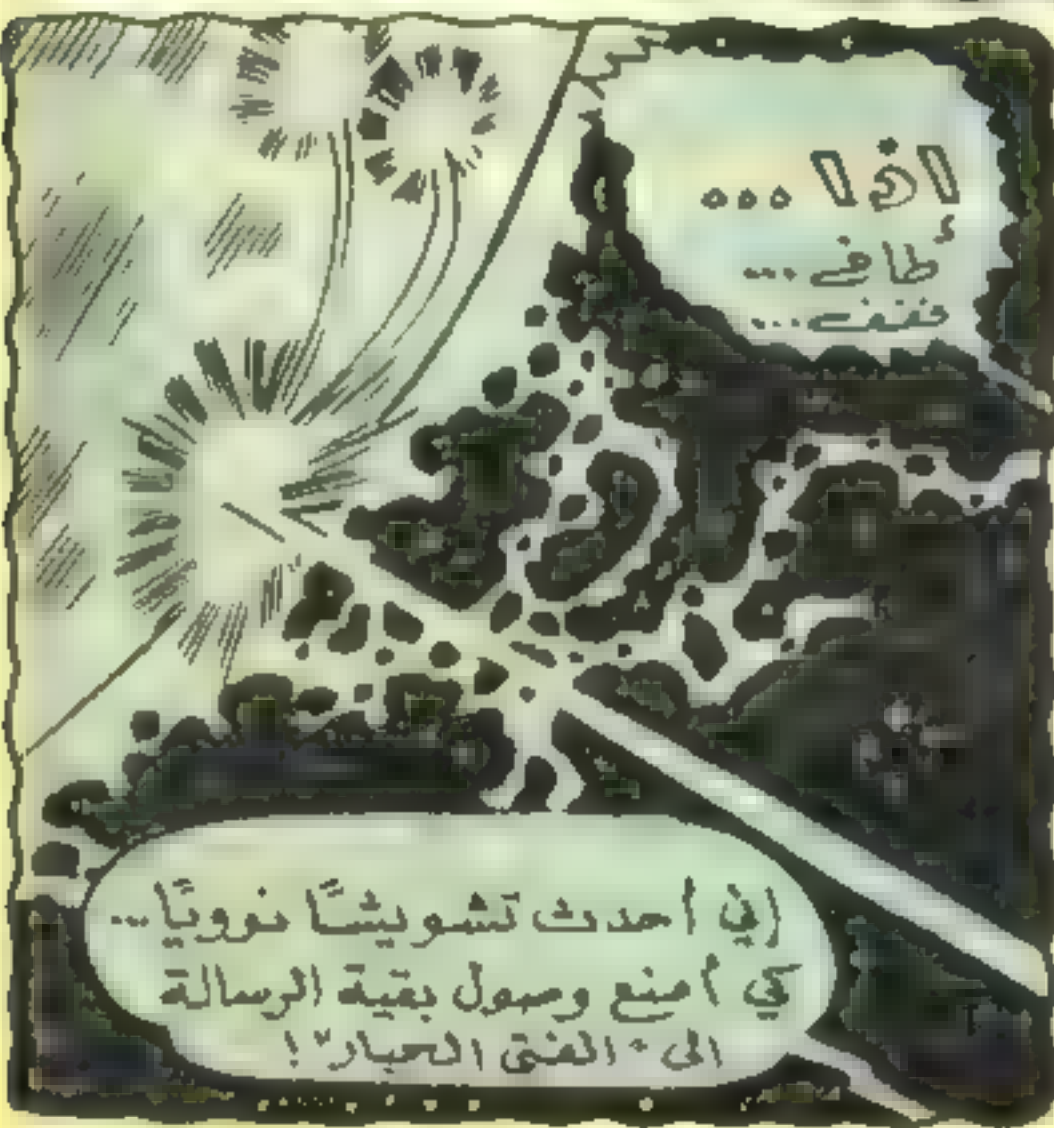 اذا ...
أطا في ...
ففف ...
إني أحدث تشويشًا نوويًا ...
كي أمنع وصول بقية الرسالة
الى "الفتى الجبار"!